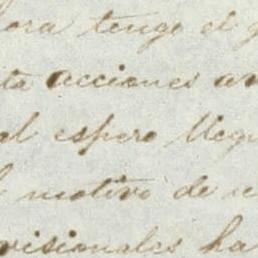 ora tengo el g
ta acciones an
al espero lleg
l motivo de re
visionales ha